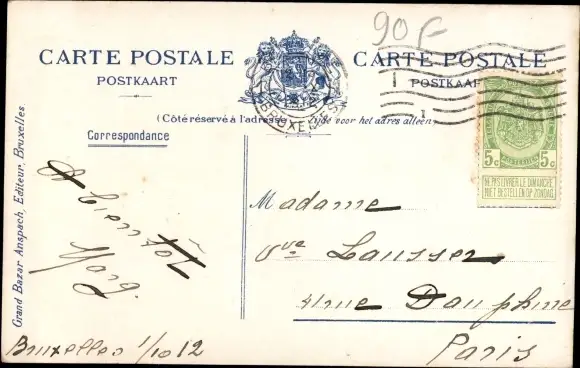 90 F
CARTE POSTALE
POSTKAART
CARTE POSTALE
POSTKAART
(Côté réservé à l'adresse) Zijde voor het adres alleen
Correspondance
A bientôt
Grand Bazar Anspach, Editeur, Bruxelles
Bruxelles 1/10 12
5c 5c
NE PAS LIVRER LE DIMANCHE
NIET BESTELLEN OP ZONDAG
Madame
Vve Lausser
4 rue Dauphine
Paris